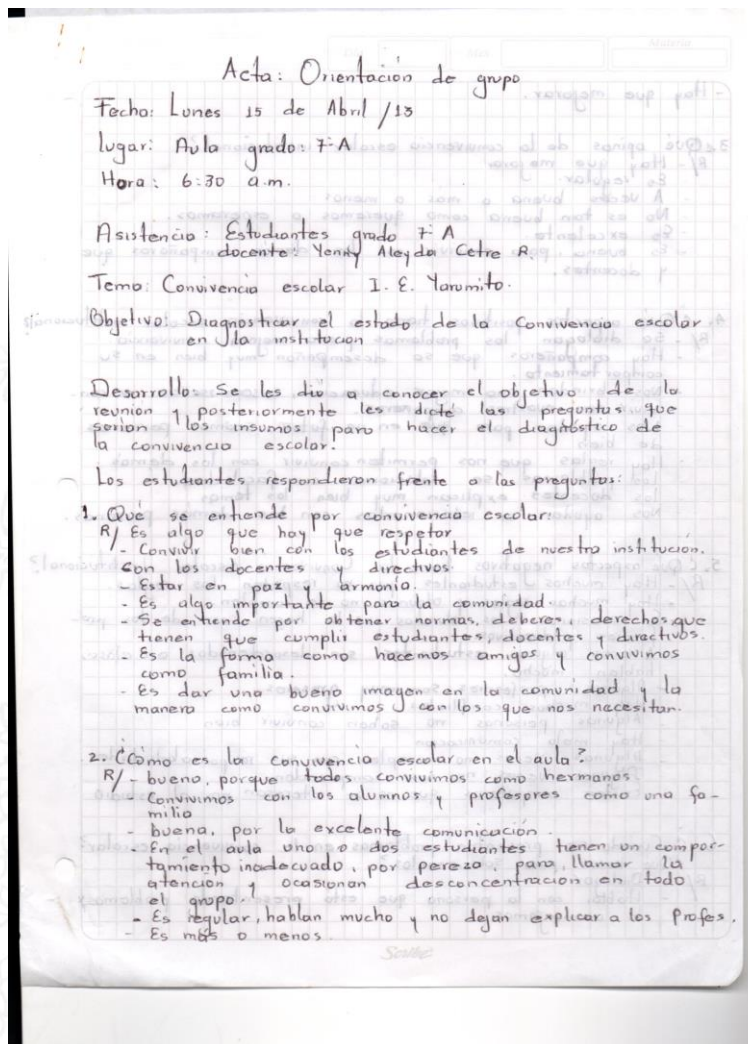 Acta: Orientación de grupo
Fecha: Lunes 15 de Abril /13
lugar: Aula grado: 7º A
Hora: 6:30 a.m.
Asistencia: Estudiantes grado 7º A
docente: Yenny Aleyda Cetre R.
Tema: Convivencia escolar I. E. Yarumito.
Objetivo: Diagnosticar el estado de la Convivencia escolar
en la institucion
Desarrollo: Se les dió a conocer el objetivo de la
reunion y posteriormente les dicté las preguntas que
serian los insumos para hacer el diagnóstico de
la convivencia escolar.
Los estudiantes respondieron frente a las preguntas:
1. Qué se entiende por convivencia escolar:
R/ Es algo que hay que respetar
- Convivir bien con los estudiantes de nuestra institución.
con los docentes y directivos.
- Estar en paz y armonía.
- Es algo importante para la comunidad
- Se entiende por obtener normas, deberes, derechos que
tienen que cumplir estudiantes, docentes y directivos.
- Es la forma como hacemos amigos y convivimos
como familia.
- Es dar una buena imagen en la comunidad y la
manera como convivimos con los que nos necesitan.
2. ¿Cómo es la convivencia escolar en el aula?
R/ - buena, porque todos convivimos como hermanos
- Convivimos con los alumnos y profesores como una fa-
milia
- buena, por la excelente comunicación.
- En el aula uno o dos estudiantes tienen un compor-
tamiento inadecuado, por pereza, para llamar la
atención y ocasionan desconcentración en todo
el grupo.
- Es regular, hablan mucho y no dejan explicar a los Profes.
- Es más o menos.
Scribe